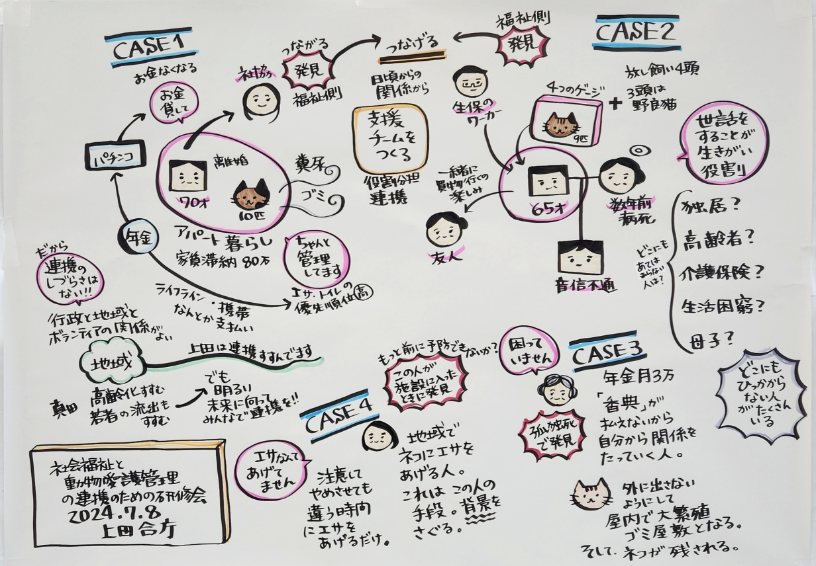 CASE1
お金なくなる
お金
貸して
パチンコ
年金
離婚
70才
10匹
糞尿
ゴミ
アパート暮らし
家賃滞納 80万
ちゃんと
管理
してます
エサ、トイレの
優先順位高
ライフライン・携帯
なんとか支払い
だから
連携の
しづらさは
ない!!
行政と地域と
ボランティアの関係がよい
社協
つながる
発見
福祉側
つなげる
日頃からの
関係から
支援
チームを
つくる
役割分担
連携
福祉側
発見
生保の
ワーカー
一緒に
買物行くの
楽しみ
友人
CASE2
4つのゲージ
9匹
+
放し飼い4頭
3頭は
野良猫
65才
数年前
病死
音信不通
世話を
することが
生きがい
役割り
どこにも
あてはまらない
人は?
独居?
高齢者?
介護保険?
生活困窮?
母子?
どこにも
ひっかから
ない人
がたくさん
いる
地域
上田は連携すすんでます
真田
高齢化すすむ
若者の流出も
すすむ
でも
明るい
未来に向って
みんなで連携を!!
社会福祉と
動物愛護管理
の連携のための研修会
2024.7.8
上田合庁
CASE4
もっと前に予防できないか?
この人が
施設に入った
ときに発見
エサなんて
あげて
ません
注意して
やめさせても
違う時間
にエサを
あげるだけ。
地域で
ネコにエサを
あげる人。
これは この人の
手段。背景を
さぐる。
CASE3
困って
いません
孤独死
で発見
年金月3万
「香典」が
払えないから
自分から関係を
たっていく人。
外に出さない
ようにして
屋内で大繁殖
ゴミ屋敷となる。
そして、ネコが残される。